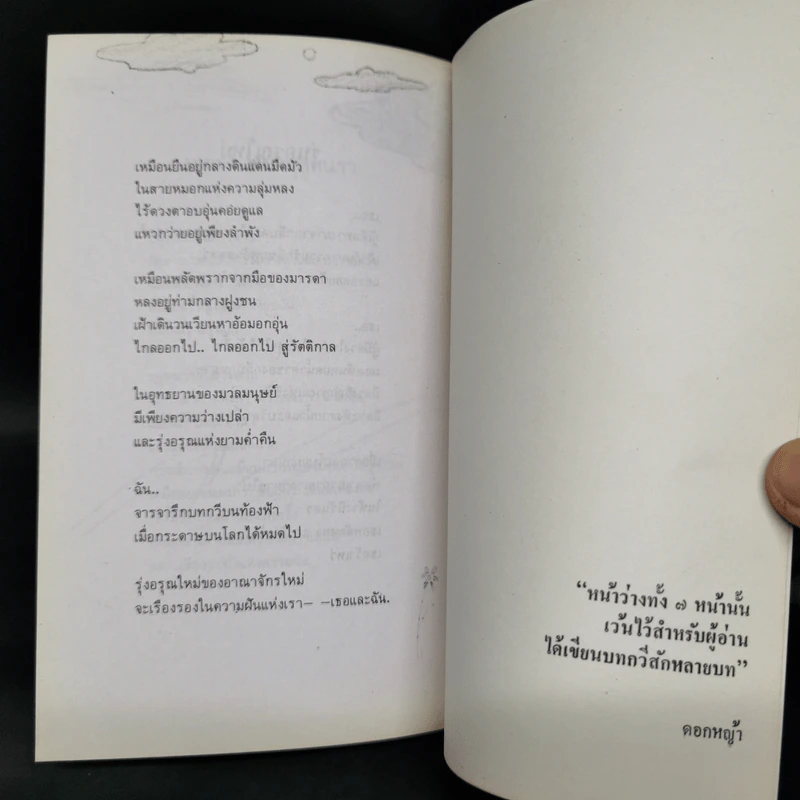 เหมือนยืนอยู่กลางดินแดนมืดมัว
ในสายหมอกแห่งความลุ่มหลง
ไร้ดวงตาอบอุ่นคอยดูแล
แหวกว่ายอยู่เพียงลำพัง
เหมือนพลัดพรากจากมือของมารดา
หลงอยู่ท่ามกลางฝูงชน
เฝ้าเดินวนเวียนหาอ้อมอกอุ่น
ไกลออกไป.. ไกลออกไป สู่รัตติกาล
ในอุทธยานของมวลมนุษย์
มีเพียงความว่างเปล่า
และรุ่งอรุณแห่งยามค่ำคืน
ฉัน..
จารจารึกบทกวีบนท้องฟ้า
เมื่อกระดาษบนโลกได้หมดไป
รุ่งอรุณใหม่ของอาณาจักรใหม่
จะเรืองรองในความฝันแห่งเรา— —เธอและฉัน.
“หน้าว่างทั้ง ๗ หน้านั้น
เว้นไว้สำหรับผู้อ่าน
ได้เขียนบทกวีสักหลายบท”
ดอกหญ้า